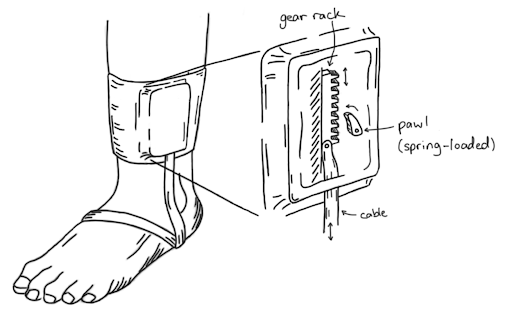 gear rack
pawl
(spring-loaded)
cable